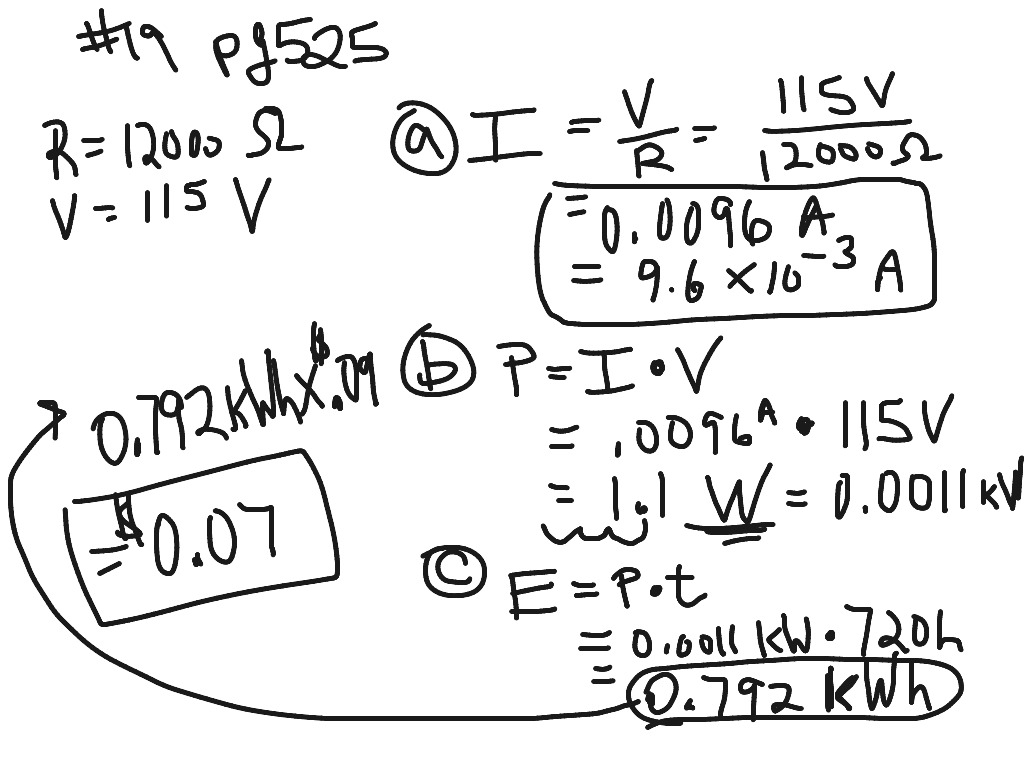 #19 pg525
R = 12000 Ω
V = 115 V
ⓐ I = V/R = 115V/12000Ω
= 0.0096 A
= 9.6 × 10⁻³ A
ⓑ P = I • V
= .0096A • 115V
= 1.1 W = 0.0011 kW
ⓒ E = P • t
= 0.0011 kW • 720h
= 0.792 kWh
0.792 kWh × $.09
= $0.07